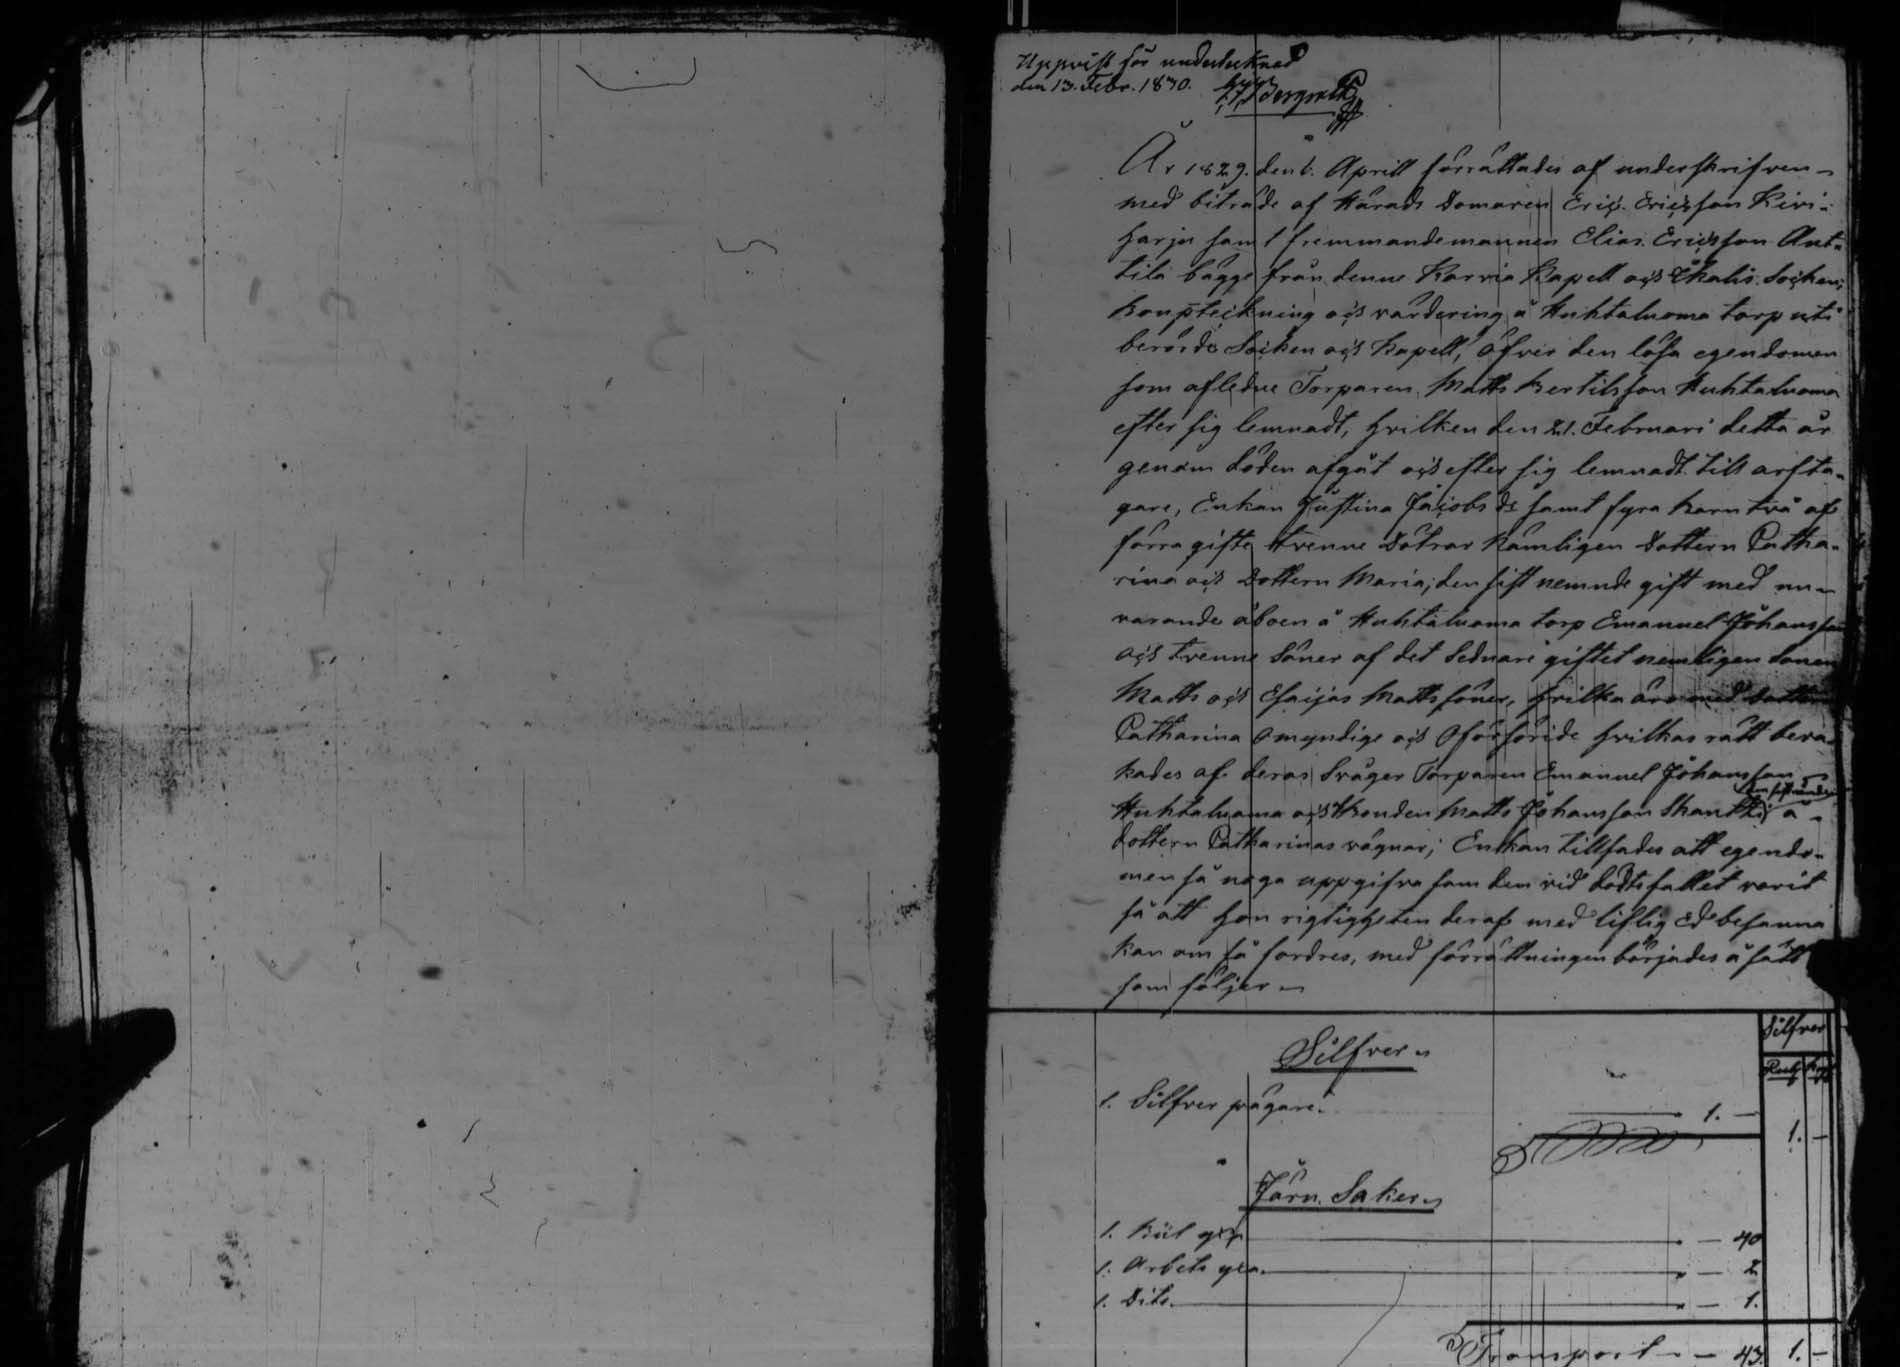 Uppvist för undertecknad
den 13. Febr. 1830. Bergroth
År 1829. den 6. Aprill förrättades af underskrifven
med biträde af Härads Domaren Eric Ericsson Kivi-
harju samt fremmandemannen Elias Ericsson Ant-
tila bägge från denne Karvia Kapell och Ikalis Sochen,
Boupteckning och värdering å Huhtaluoma torp uti
berörde Socken och Kapell, öfver den lösa egendomen
som afledne Torparen Matts Bertilsson Huhtaluoma
efter sig lemnadt, hvilken den 21. Februari detta år
genom döden afgåt och efter sig lemnadt till arfta-
gare, Enkan Justina Jacobs dr samt fyra barn två af
förra gifte tvenne Dötrar Nämligen Dottern Catha-
rina och Dottern Maria, den sist nemnde gift med nu-
varande åboen å Huhtaluoma torp Emanuel Johansson
och tvenne Söner af det Sednare giftet nemligen Sonen
Matts och Esaijas Mattssöner, hvilka äro med dottren
Catharina Omyndige och Oförsörde hvilkas rätt beva-
kades af deras Svåger Torparen Emanuel Johansson
Huhtaluoma och Bonden Matts Johansson Skantzi å
dottern Catharinas vägnar; Enkan tillsades att egendo-
men så noga uppgifva som den vid dödsfallet varit
så att hon rigtigheten deraf med liflig Ed besanna
kan om så fordres, med förrättningen börjades å sätt
som följer
Silfver
Silfver Rub. Kop.
1. Silfver pägare. 1. —
1. —
Järn Saker
1. Bil yxa — 40
1. Arbets yxa. — 2
1. Dito. — 1.
Transport — 43. 1. —